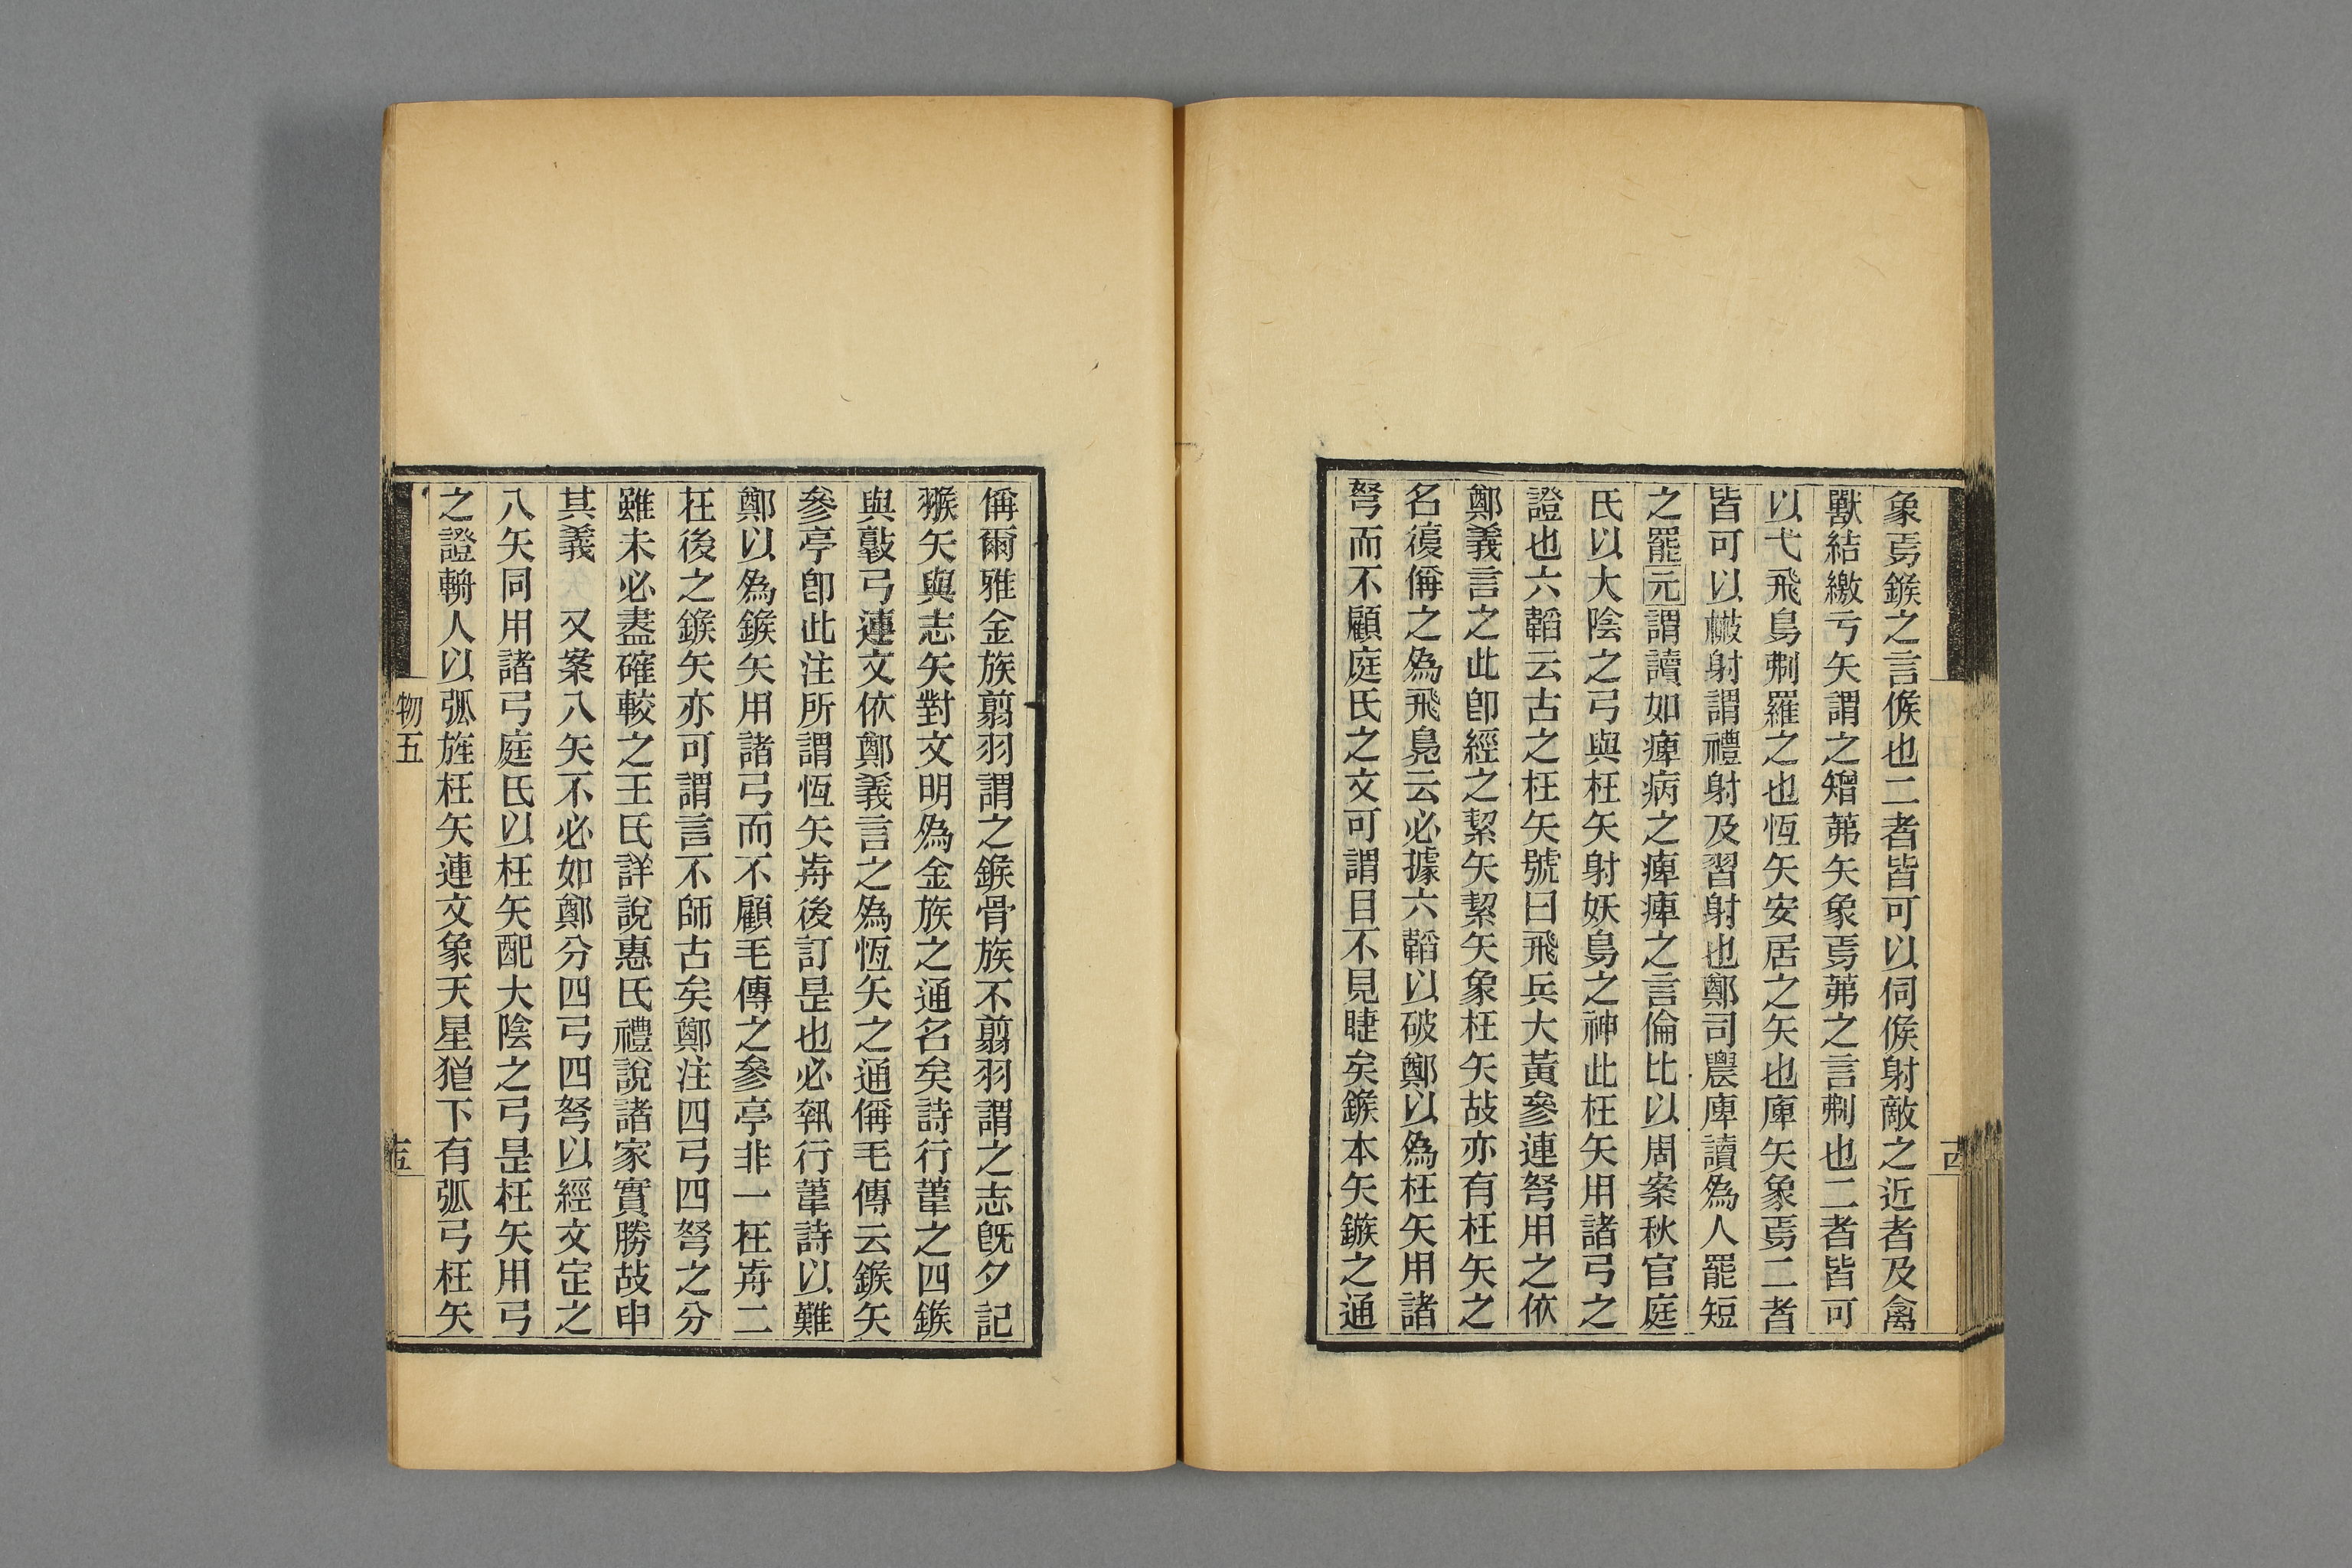 象焉鍭之言候也二者皆可以伺候射敵之近者及禽
獸結繳亏矢謂之矰茀矢象焉茀之言刜也二者皆可
以弋飛鳥刜羅之也恆矢安居之矢也庳矢象焉二者
皆可以檄射謂禮射及習射也鄭司農庳讀為人罷短
之罷元謂讀如痺病之痺痺之言倫比以周案秋官庭
氏以大陰之弓與枉矢射妖鳥之神此枉矢用諸弓之
證也六韜云古之枉矢號曰飛兵大黃參連弩用之依
鄭義言之此卽經之絜矢絜矢象枉矢故亦有枉矢之
名復偁之為飛鳧云必據六韜以破鄭以為枉矢用諸
弩而不顧庭氏之文可謂目不見睫矣鍭本矢鏃之通
偁爾雅金族翦羽謂之鍭骨族不翦羽謂之志旣夕記
翭矢與志矢對文明為金族之通名矣詩行葦之四鍭
與敦弓連文依鄭義言之為恆矢之通偁毛傳云鍭矢
參亭卽此注所謂恆矢歬後訂是也必執行葦詩以難
鄭以為鍭矢用諸弓而不顧毛傳之參亭非一在歬二
在後之鍭矢亦可謂言不師古矣鄭注四弓四弩之分
雖未必盡確較之王氏詳說惠氏禮說諸家實勝故申
其義　又案八矢不必如鄭分四弓四弩以經文定之
八矢同用諸弓庭氏以枉矢配大陰之弓是枉矢用弓
之證輈人以弧旌枉矢連文象天星猶下有弧弓枉矢
物五
十五
十四